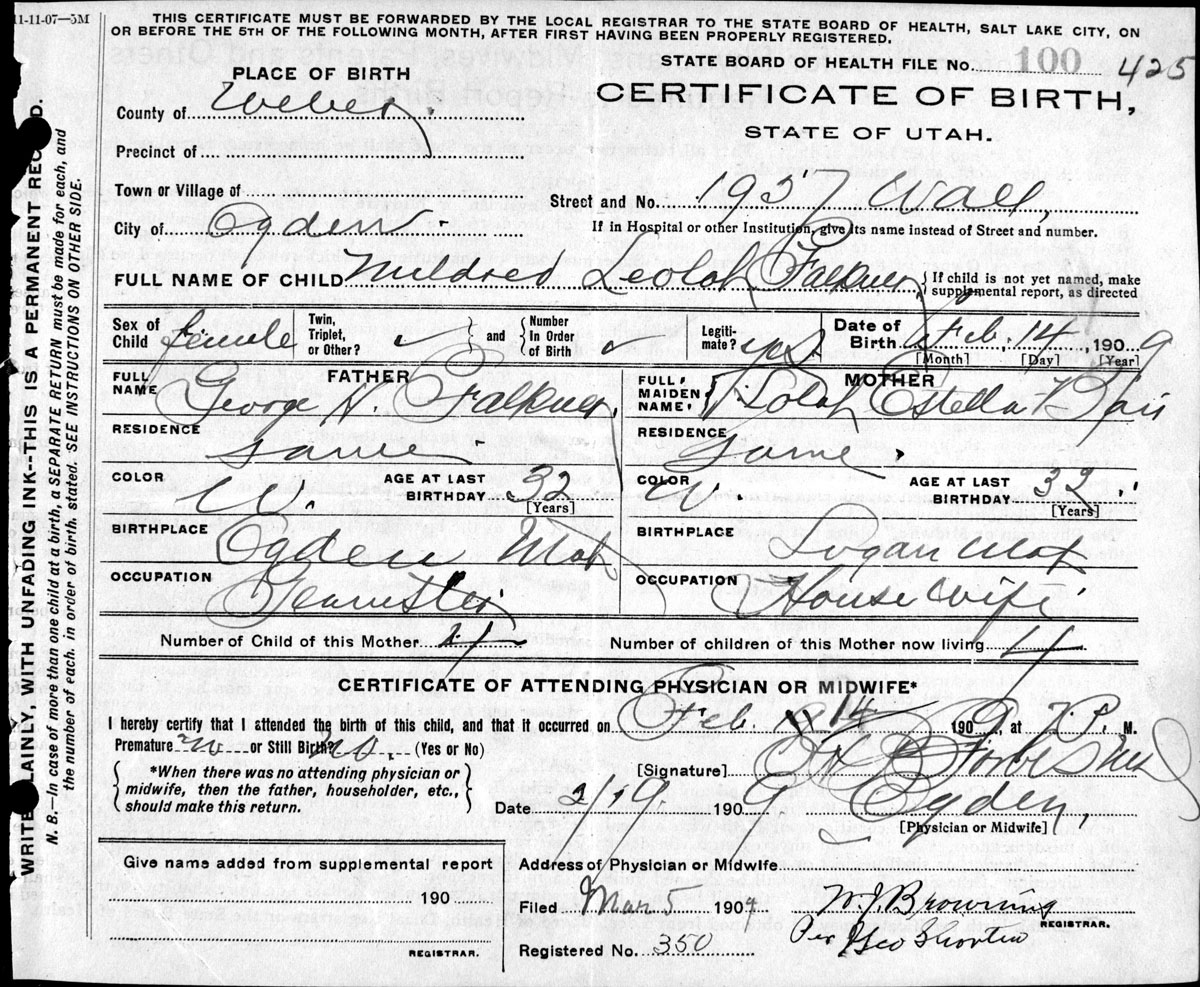 11-11-07—5M
THIS CERTIFICATE MUST BE FORWARDED BY THE LOCAL REGISTRAR TO THE STATE BOARD OF HEALTH, SALT LAKE CITY, ON
OR BEFORE THE 5TH OF THE FOLLOWING MONTH, AFTER FIRST HAVING BEEN PROPERLY REGISTERED.
STATE BOARD OF HEALTH FILE No. 100 425
PLACE OF BIRTH
CERTIFICATE OF BIRTH,
STATE OF UTAH.
County of Weber
Precinct of
Town or Village of
Street and No. 1937 Wall,
City of Ogden
If in Hospital or other Institution, give its name instead of Street and number.
FULL NAME OF CHILD Mildred Leolah Falkner, If child is not yet named, make supplemental report, as directed
Sex of Child female Twin, Triplet, or Other? and Number In Order of Birth Legiti-mate? yes Date of Birth Feb. 14, 1909
[Month] [Day] [Year]
FATHER
FULL NAME George N. Falkner,
MOTHER
FULL MAIDEN NAME Estella
RESIDENCE Same
RESIDENCE Same
COLOR W. AGE AT LAST BIRTHDAY 32 [Years]
COLOR W. AGE AT LAST BIRTHDAY 32 [Years]
BIRTHPLACE Ogden Utah
BIRTHPLACE Logan Utah
OCCUPATION Teamster
OCCUPATION House wife
Number of Child of this Mother 4
Number of children of this Mother now living 4
CERTIFICATE OF ATTENDING PHYSICIAN OR MIDWIFE*
I hereby certify that I attended the birth of this child, and that it occurred on Feb. 14 1909, at P. M.
Premature no or Still Birth? no. (Yes or No)
*When there was no attending physician or midwife, then the father, householder, etc., should make this return.
[Signature]
Date 2/19 1909 Ogden,
[Physician or Midwife]
Give name added from supplemental report
190
REGISTRAR.
Address of Physician or Midwife
Filed Mar 5 1909 W. J. Browning
REGISTRAR.
Per Geo
Registered No. 350
WRITE PLAINLY, WITH UNFADING INK--THIS IS A PERMANENT RECORD.
N. B.—In case of more than one child at a birth, a SEPARATE RETURN must be made for each, and
the number of each, in order of birth, stated. SEE INSTRUCTIONS ON OTHER SIDE.